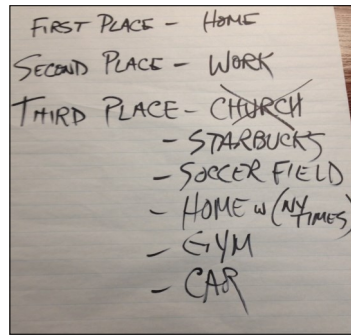 FIRST PLACE - HOME
SECOND PLACE - WORK
THIRD PLACE - CHURCH
- STARBUCKS
- SOCCER FIELD
- HOME W (NY TIMES)
- GYM
- CAR